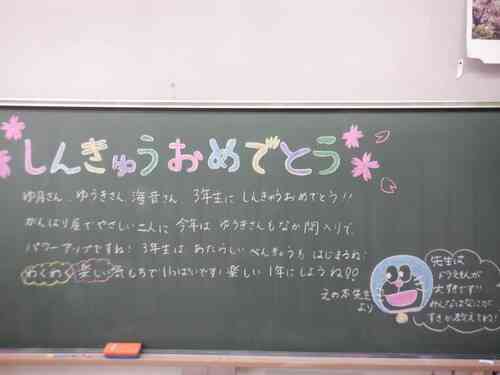 しんきゅうおめでとう
ゆうきさん、海音さん、3年生に しんきゅうおめでとう!!
がんばり屋でやさしい二人に 今年は ゆうきさんもなか間入りで、
パワーアップですね! 3年生は あたらしい べんきょうも はじまるね!
わくわく 楽しい気もちで いっぱいです! 楽しい 1年にしようね!!
えの本先生
より
先生は
ドラえもんが
大すきです!!
みんなはなにが
すきか教えてね!